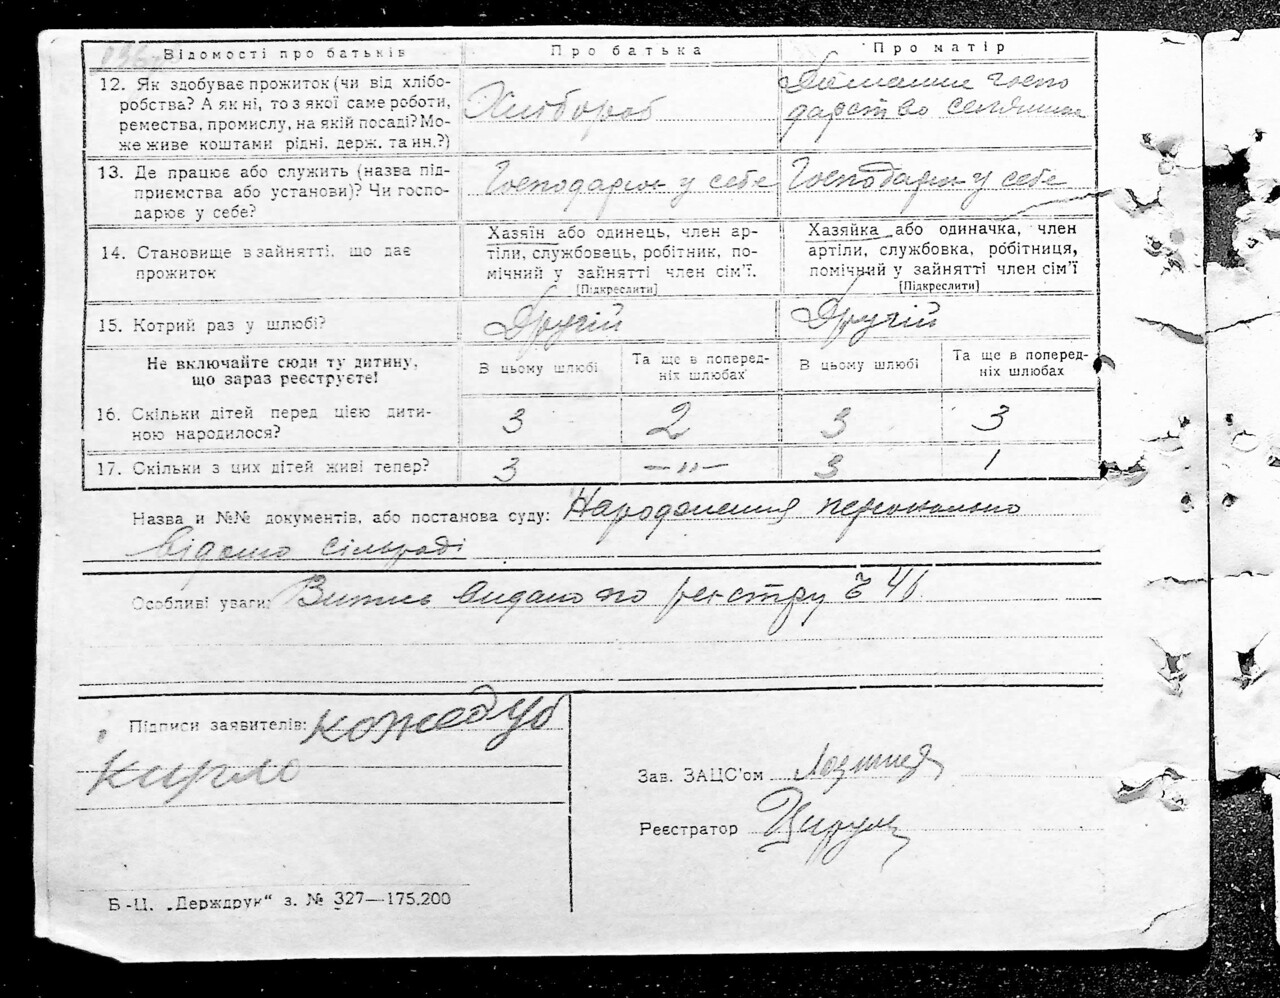 Відомості про батьків
Про батька
Про матір
12. Як здобуває прожиток (чи від хлібо-
робства? А як ні, то з якої саме роботи,
ремества, промислу, на якій посаді? Мо-
же живе коштами рідні, держ. та ин.?)
Хлібороб
Домашне госпо
дарство селянин
13. Де працює або служить (назва під-
приємства або установи)? Чи госпо-
дарює у себе?
Господарює у себе
Господарює у себе
14. Становище в зайнятті, що дає
прожиток
Хазяїн або одинець, член ар-
тіли, службовець, робітник, по-
мічний у зайнятті член сім'ї.
[Підкреслити]
Хазяйка або одиначка, член
артіли, службовка, робітниця,
помічний у зайнятті член сім'ї
[Підкреслити]
15. Котрий раз у шлюбі?
Другій
Другій
Не включайте сюди ту дитину,
що зараз реєструєте!
В цьому шлюбі
Та ще в поперед-
ніх шлюбах
В цьому шлюбі
Та ще в поперед-
ніх шлюбах
16. Скільки дітей перед цією дити-
ною народилося?
3
2
3
3
17. Скільки з цих дітей живі тепер?
3
—"—
3
1
Назва и №№ документів, або постанова суду: Народження персонально
відомо сільраді
Особливі уваги: Випись видано по реєстру
Підписи заявителів: Кожедуб
Зав. ЗАЦС'ом
Реєстратор
Б-Ц. „Держдрук“ з. № 327—175.200